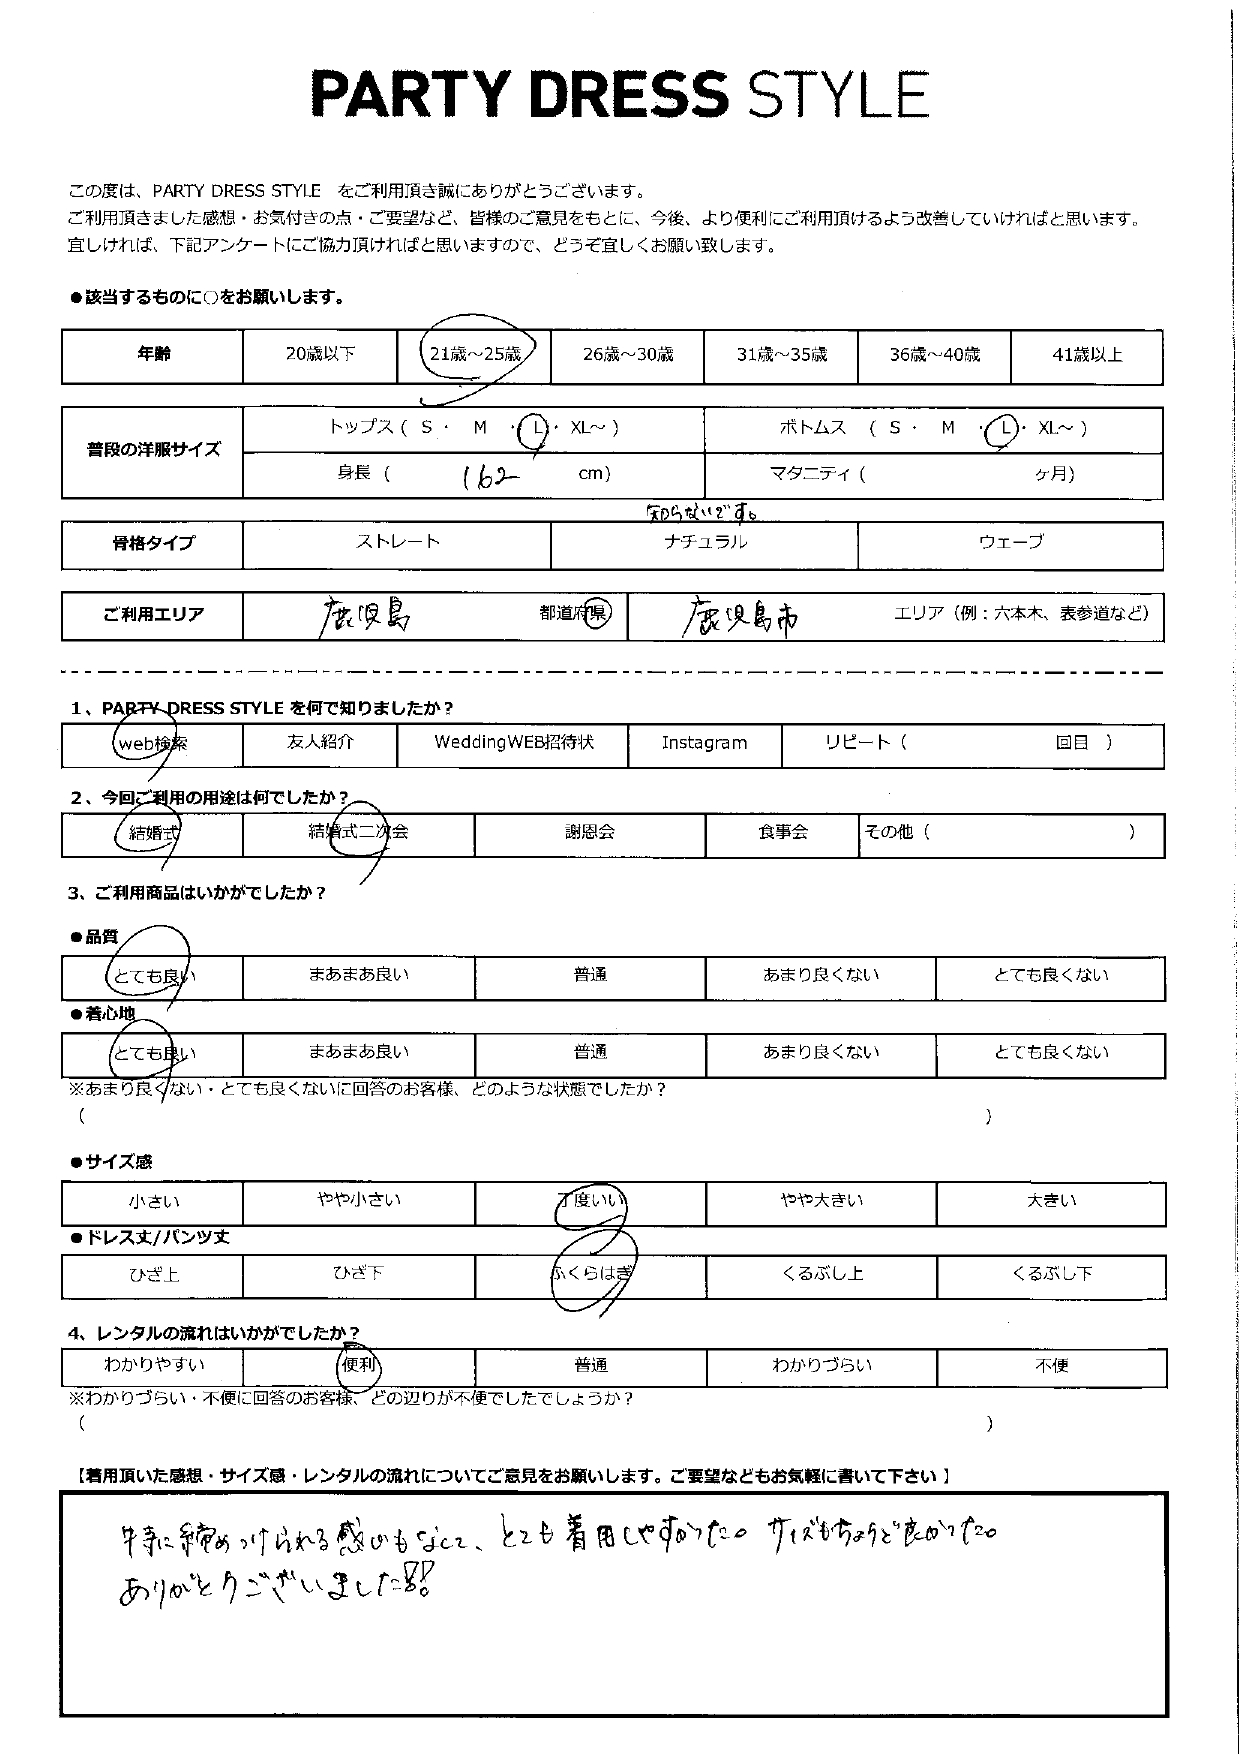 PARTY DRESS STYLE
この度は、PARTY DRESS STYLE をご利用頂き誠にありがとうございます。
ご利用頂きました感想・お気付きの点・ご要望など、皆様のご意見をもとに、今後、より便利にご利用頂けるよう改善していければと思います。
宜しければ、下記アンケートにご協力頂ければと思いますので、どうぞ宜しくお願い致します。
●該当するものに○をお願いします。
年齢 20歳以下 21歳～25歳 26歳～30歳 31歳～35歳 36歳～40歳 41歳以上
普段の洋服サイズ トップス ( S ・ M ・ L ・ XL～ ) ボトムス ( S ・ M ・ L ・ XL～ )
身長 ( 162 cm) マタニティ ( ヶ月)
知らないです。
骨格タイプ ストレート ナチュラル ウェーブ
ご利用エリア 鹿児島 都道府県 鹿児島市 エリア（例：六本木、表参道など）
1、PARTY DRESS STYLE を何で知りましたか？
web検索 友人紹介 WeddingWEB招待状 Instagram リピート ( 回目 )
2、今回ご利用の用途は何でしたか？
結婚式 結婚式二次会 謝恩会 食事会 その他 ( )
3、ご利用商品はいかがでしたか？
●品質
とても良い まあまあ良い 普通 あまり良くない とても良くない
●着心地
とても良い まあまあ良い 普通 あまり良くない とても良くない
※あまり良くない・とても良くないに回答のお客様、どのような状態でしたか？
( )
●サイズ感
小さい やや小さい 丁度いい やや大きい 大きい
●ドレス丈/パンツ丈
ひざ上 ひざ下 ふくらはぎ くるぶし上 くるぶし下
4、レンタルの流れはいかがでしたか？
わかりやすい 便利 普通 わかりづらい 不便
※わかりづらい・不便に回答のお客様、どの辺りが不便でしたでしょうか？
( )
【着用頂いた感想・サイズ感・レンタルの流れについてご意見をお願いします。ご要望などもお気軽に書いて下さい】
特に締めつけられる感じもなくて、とても着用しやすかった。サイズもちょうど良かった。
ありがとうございました!!